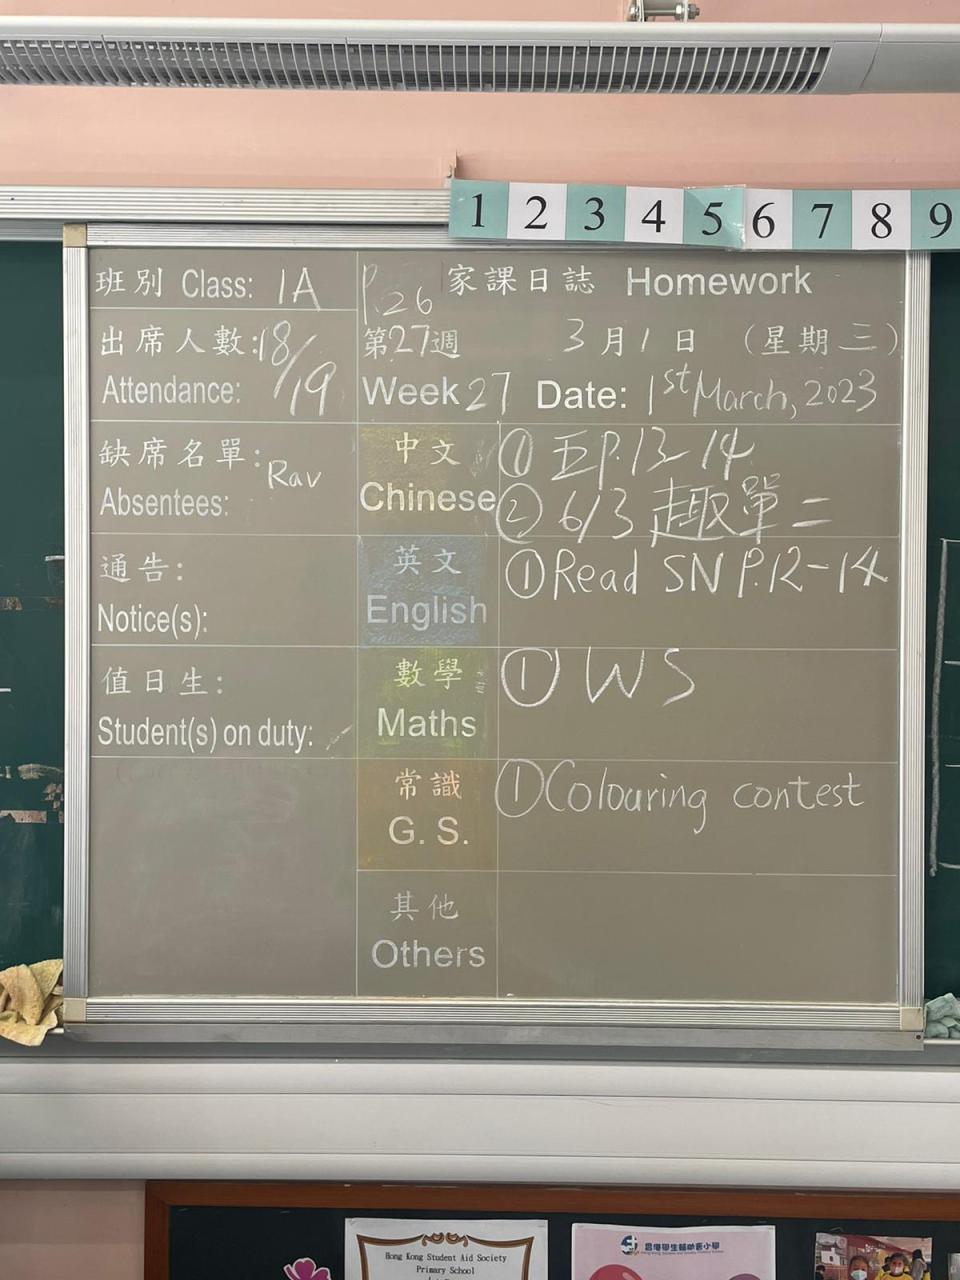 1 2 3 4 5 6 7 8 9
班別 Class: 1A
P.26 家課日誌 Homework
出席人數: 18/19
Attendance:
第27週 3月1日 (星期三)
Week 27 Date: 1st March, 2023
缺席名單: Rav
Absentees:
中文
Chinese
① P.13-14
② 6/3 趣單二
通告:
Notice(s):
英文
English
① Read SN P.12-14
值日生:
Student(s) on duty:
數學
Maths
① WS
常識
G. S.
① Colouring contest
其他
Others
Hong Kong Student Aid Society
Primary School
香港學生輔助會小學